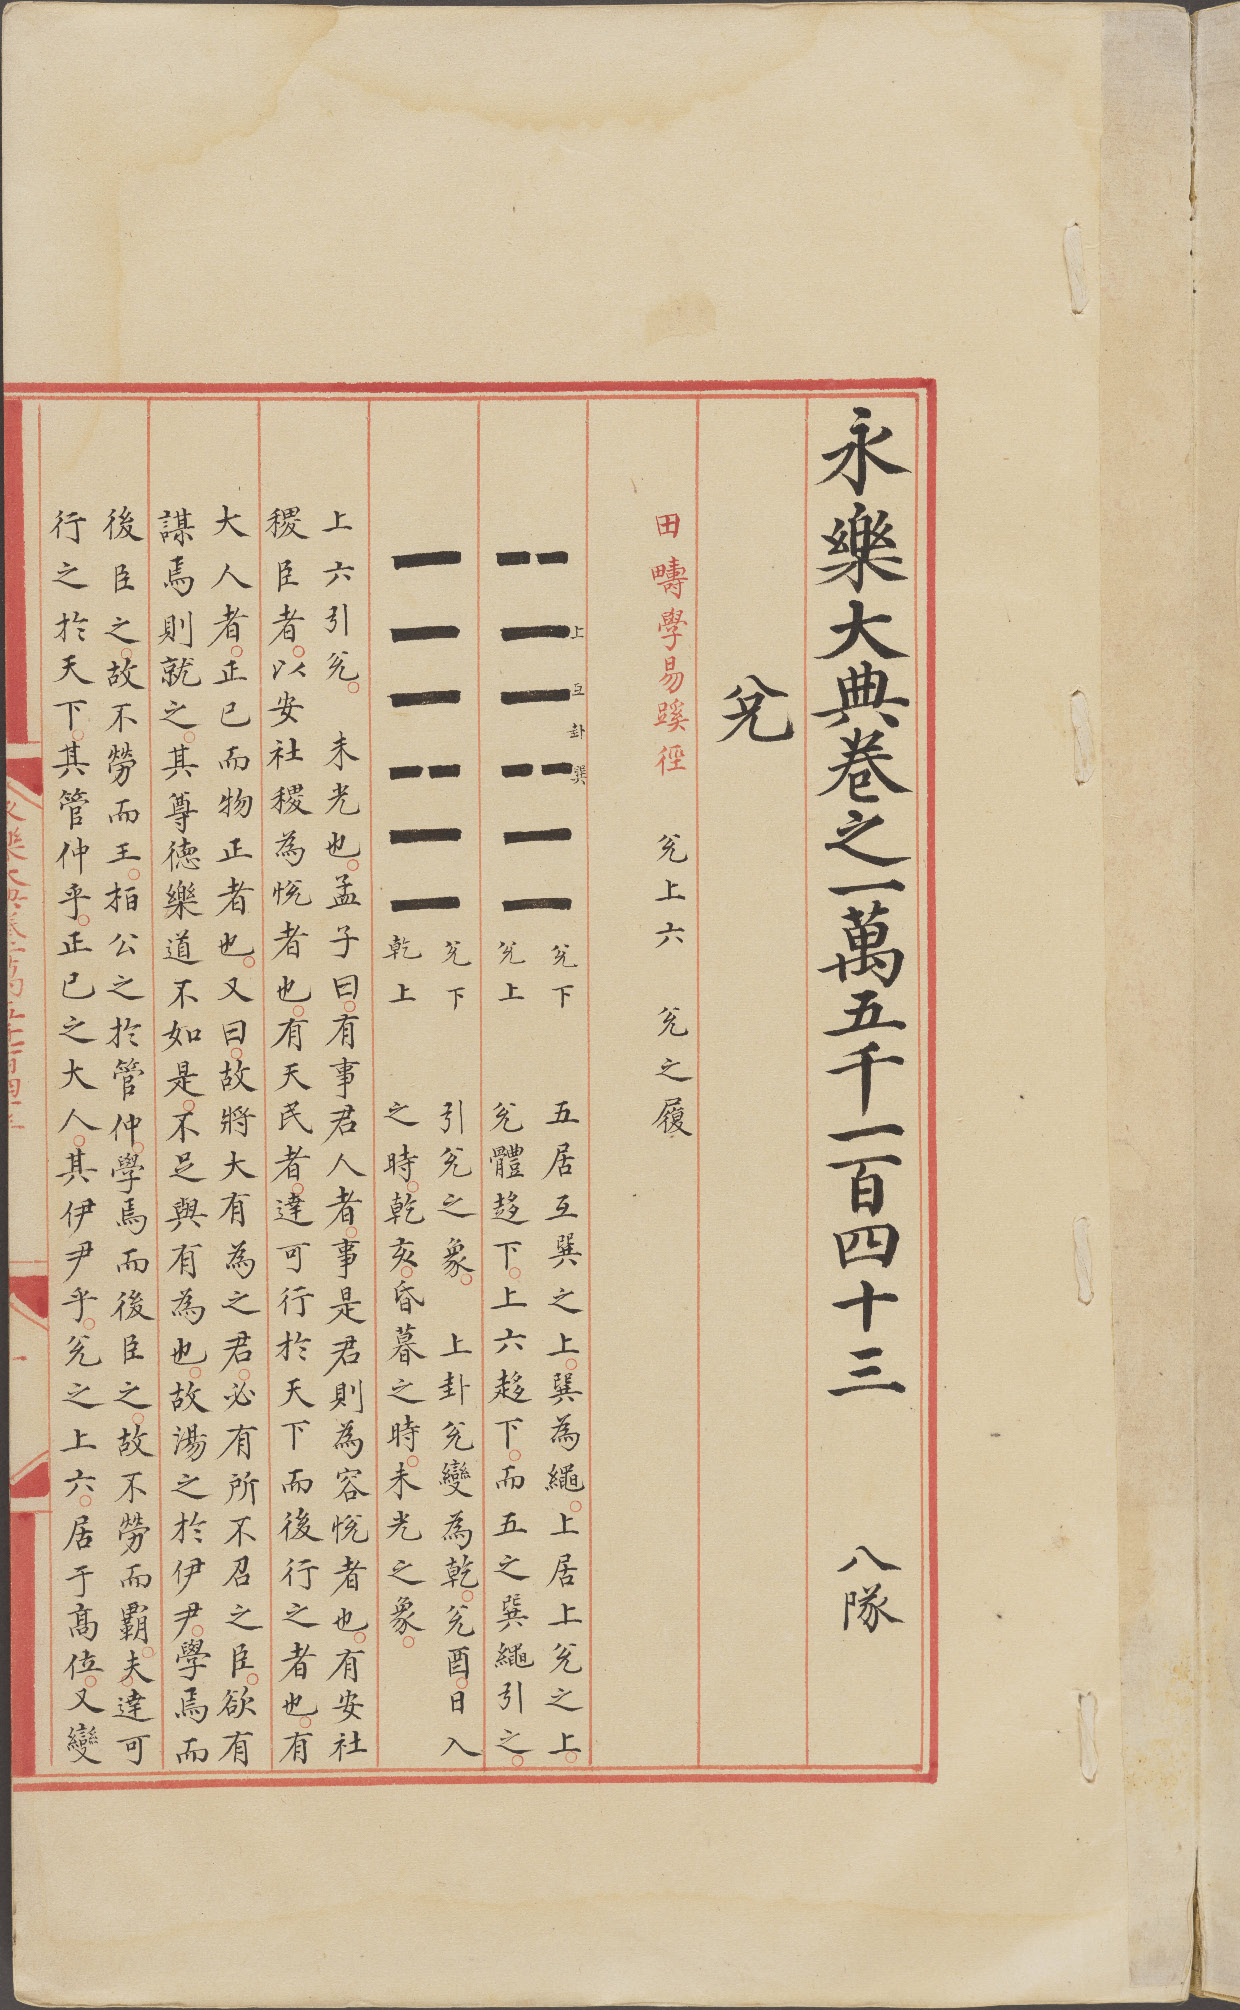 永樂大典卷之一萬五千一百四十三 八隊
兊
田疇學易蹊徑 兊上六 兊之履
上互卦巽
兊下 五居互巽之上巽為繩上居上兊之上
兊上 兊體趍下上六趍下而五之巽繩引之
兊下 引兊之象 上卦兊變為乾兊酉日入
乾上 之時乾亥昏暮之時未光之象
上六引兊 未光也孟子曰有事君人者事是君則為容恱者也有安社
稷臣者以安社稷為恱者也有天民者達可行於天下而後行之者也有
大人者正已而物正者也又曰故將大有為之君必有所不召之臣欲有
謀焉則就之其尊德樂道不如是不足與有為也故湯之於伊尹學焉而
後臣之故不勞而王桓公之於管仲學焉而後臣之故不勞而霸夫達可
行之於天下其管仲乎正已之大人其伊尹乎兊之上六居于髙位又變